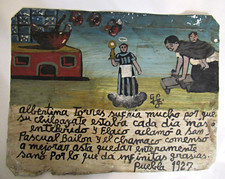 albertina Torres sufria mucho por que
su chilpayate estaba cada dia mas
entelerido y flaco aclamo a San
Pascual Bailon y el chamaco comenso
a mejorar asta quedar enteramente
sano Por lo que da infinitas grasias.
Puebla 1927